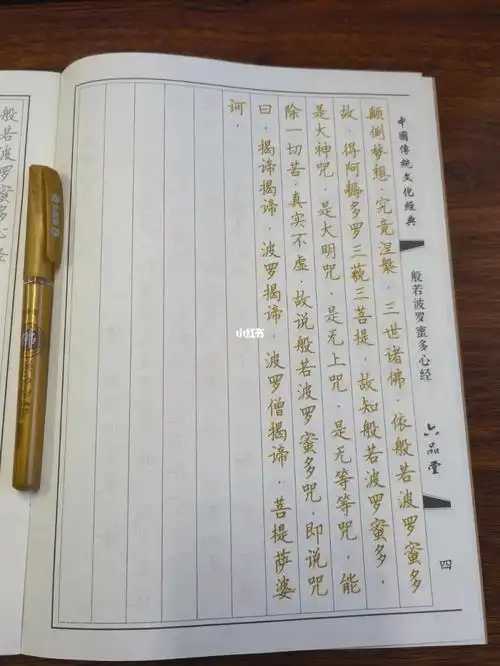 中國傳統文化經典
般若波罗蜜多心经
六品堂
四
颠倒梦想.究竟涅槃.三世诸佛.依般若波罗蜜多
故.得阿耨多罗三藐三菩提.故知般若波罗蜜多,
是大神咒.是大明咒.是无上咒.是无等等咒.能
除一切苦.真实不虚.故说般若波罗蜜多咒.即说咒
曰.揭谛揭谛.波罗揭谛.波罗僧揭谛.菩提萨婆
诃.
小红书
般若波罗蜜多心经
佛